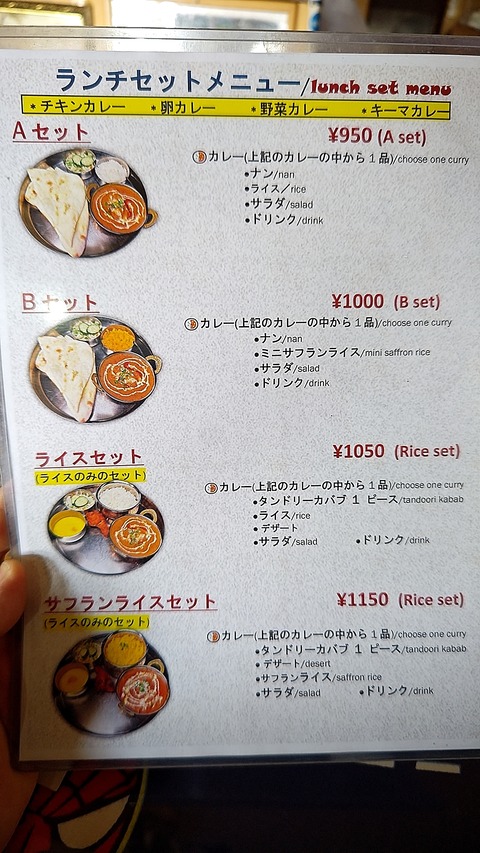 ランチセットメニュー/lunch set menu
＊チキンカレー ＊卵カレー ＊野菜カレー ＊キーマカレー
Aセット ¥950 (A set)
カレー(上記のカレーの中から１品)/choose one curry
●ナン/nan
●ライス／rice
●サラダ/salad
●ドリンク/drink
Bセット ¥1000 (B set)
カレー(上記のカレーの中から１品)/choose one curry
●ナン/nan
●ミニサフランライス/mini saffron rice
●サラダ/salad
●ドリンク/drink
ライスセット ¥1050 (Rice set)
(ライスのみのセット)
カレー(上記のカレーの中から１品)/choose one curry
●タンドリーカバブ １ ピース/tandoori kabab
●ライス/rice
●デザート
●サラダ/salad ●ドリンク/drink
サフランライスセット ¥1150 (Rice set)
(ライスのみのセット)
カレー(上記のカレーの中から１品)/choose one curry
●タンドリーカバブ １ ピース/tandoori kabab
●デザート/desert
●サフランライス/saffron rice
●サラダ/salad ●ドリンク/drink